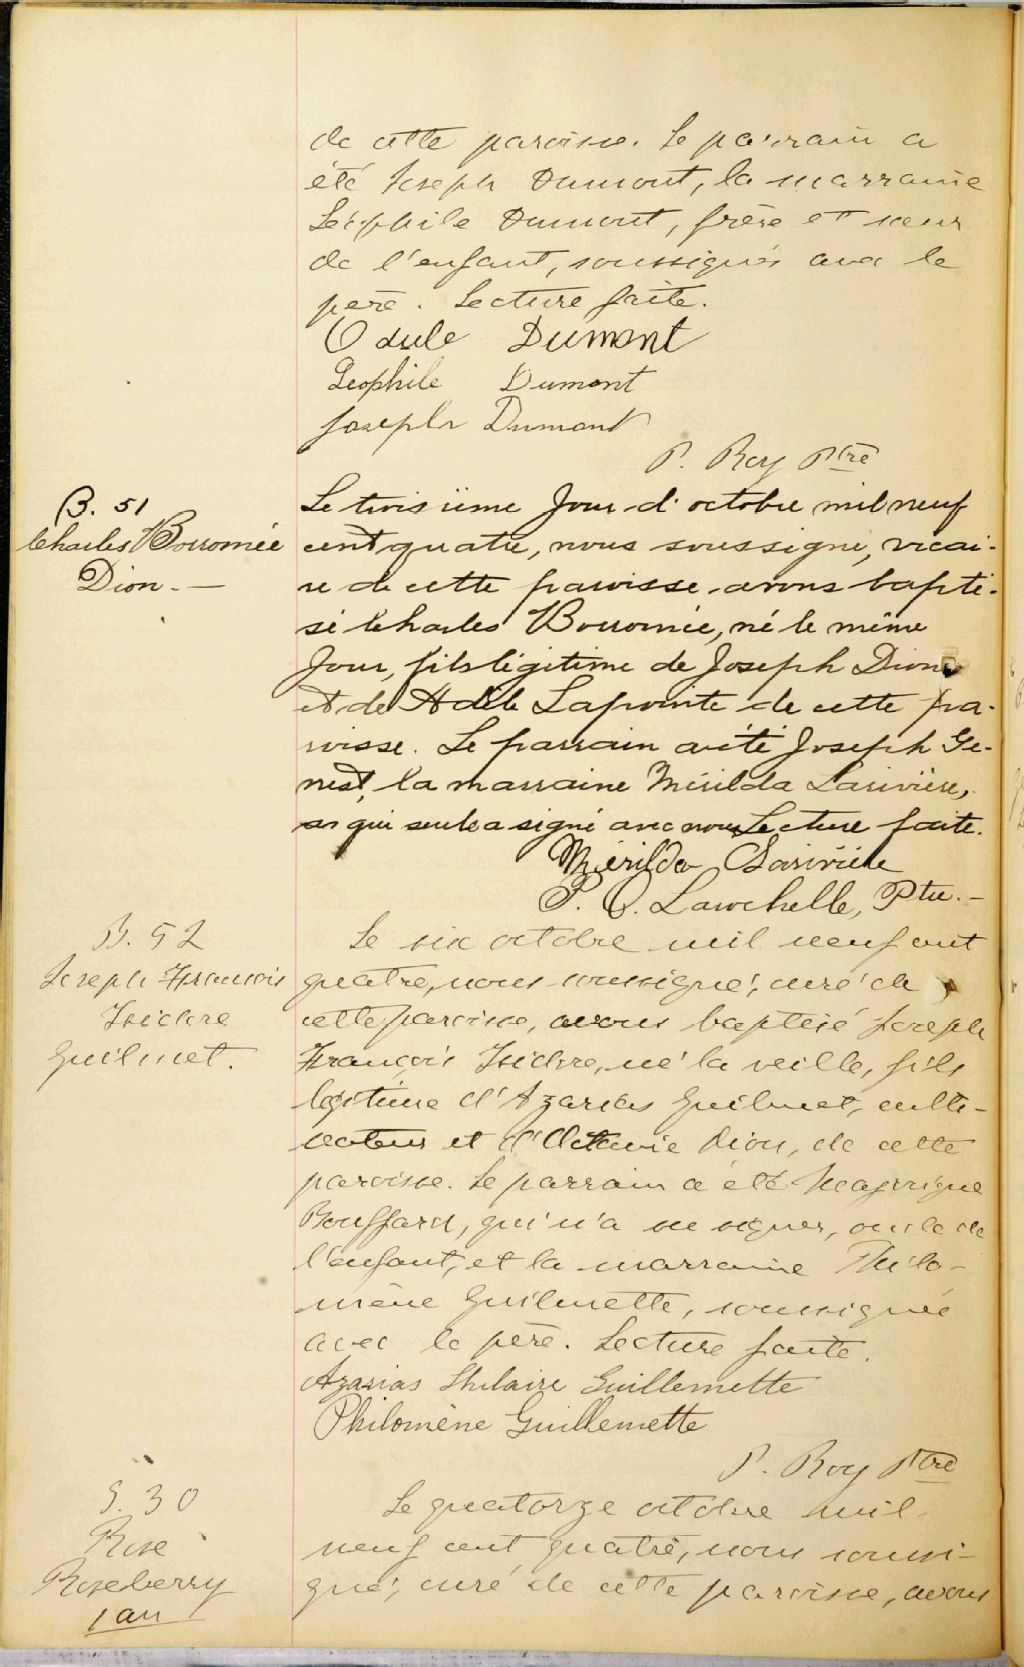 de cette paroisse. Le parrain a
été Joseph Dumont, la marraine
Léophile Dumont, frère et soeur
de l'enfant, soussignés avec le
père. Lecture faite.
Odule Dumont
Léophile Dumont
Joseph Dumont
P. Roy Ptre
B. 51
Charles Borromée
Dion. —
Le troisième jour d'octobre mil neuf
cent quatre, nous soussigné, vicai-
re de cette paroisse avons bapti-
sé Charles Borromée, né le même
Jour, fils légitime de Joseph Dion
et de Adèle Lapointe de cette pa-
roisse. Le parrain a été Joseph Ge-
nest, la marraine Mérilda Larivière,
qui seule a signé avec nous Lecture faite.
Mérilda Larivière
P. O. Larochelle, Ptre. -
B. 52
Joseph François
Isidore
Guilmet.
Le six octobre mil neuf cent
quatre, nous soussigné, curé de
cette paroisse, avons baptisé Joseph
François Isidore, né la veille, fils
légitime d'Azarias Guilmet, culti-
vateur et d'Octavie Dion, de cette
paroisse. Le parrain a été
Bouffard, qui n'a su signer, oncle de
l'enfant, et la marraine Philo-
mène Guilmette, soussignée
avec le père. Lecture faite.
Azarias Hilaire Guillemette
Philomène Guillemette
P. Roy Ptre
S. 30
Rose
Roseberry
1 an
Le quatorze octobre mil
neuf cent quatre, nous soussi-
gné, curé de cette paroisse, avons